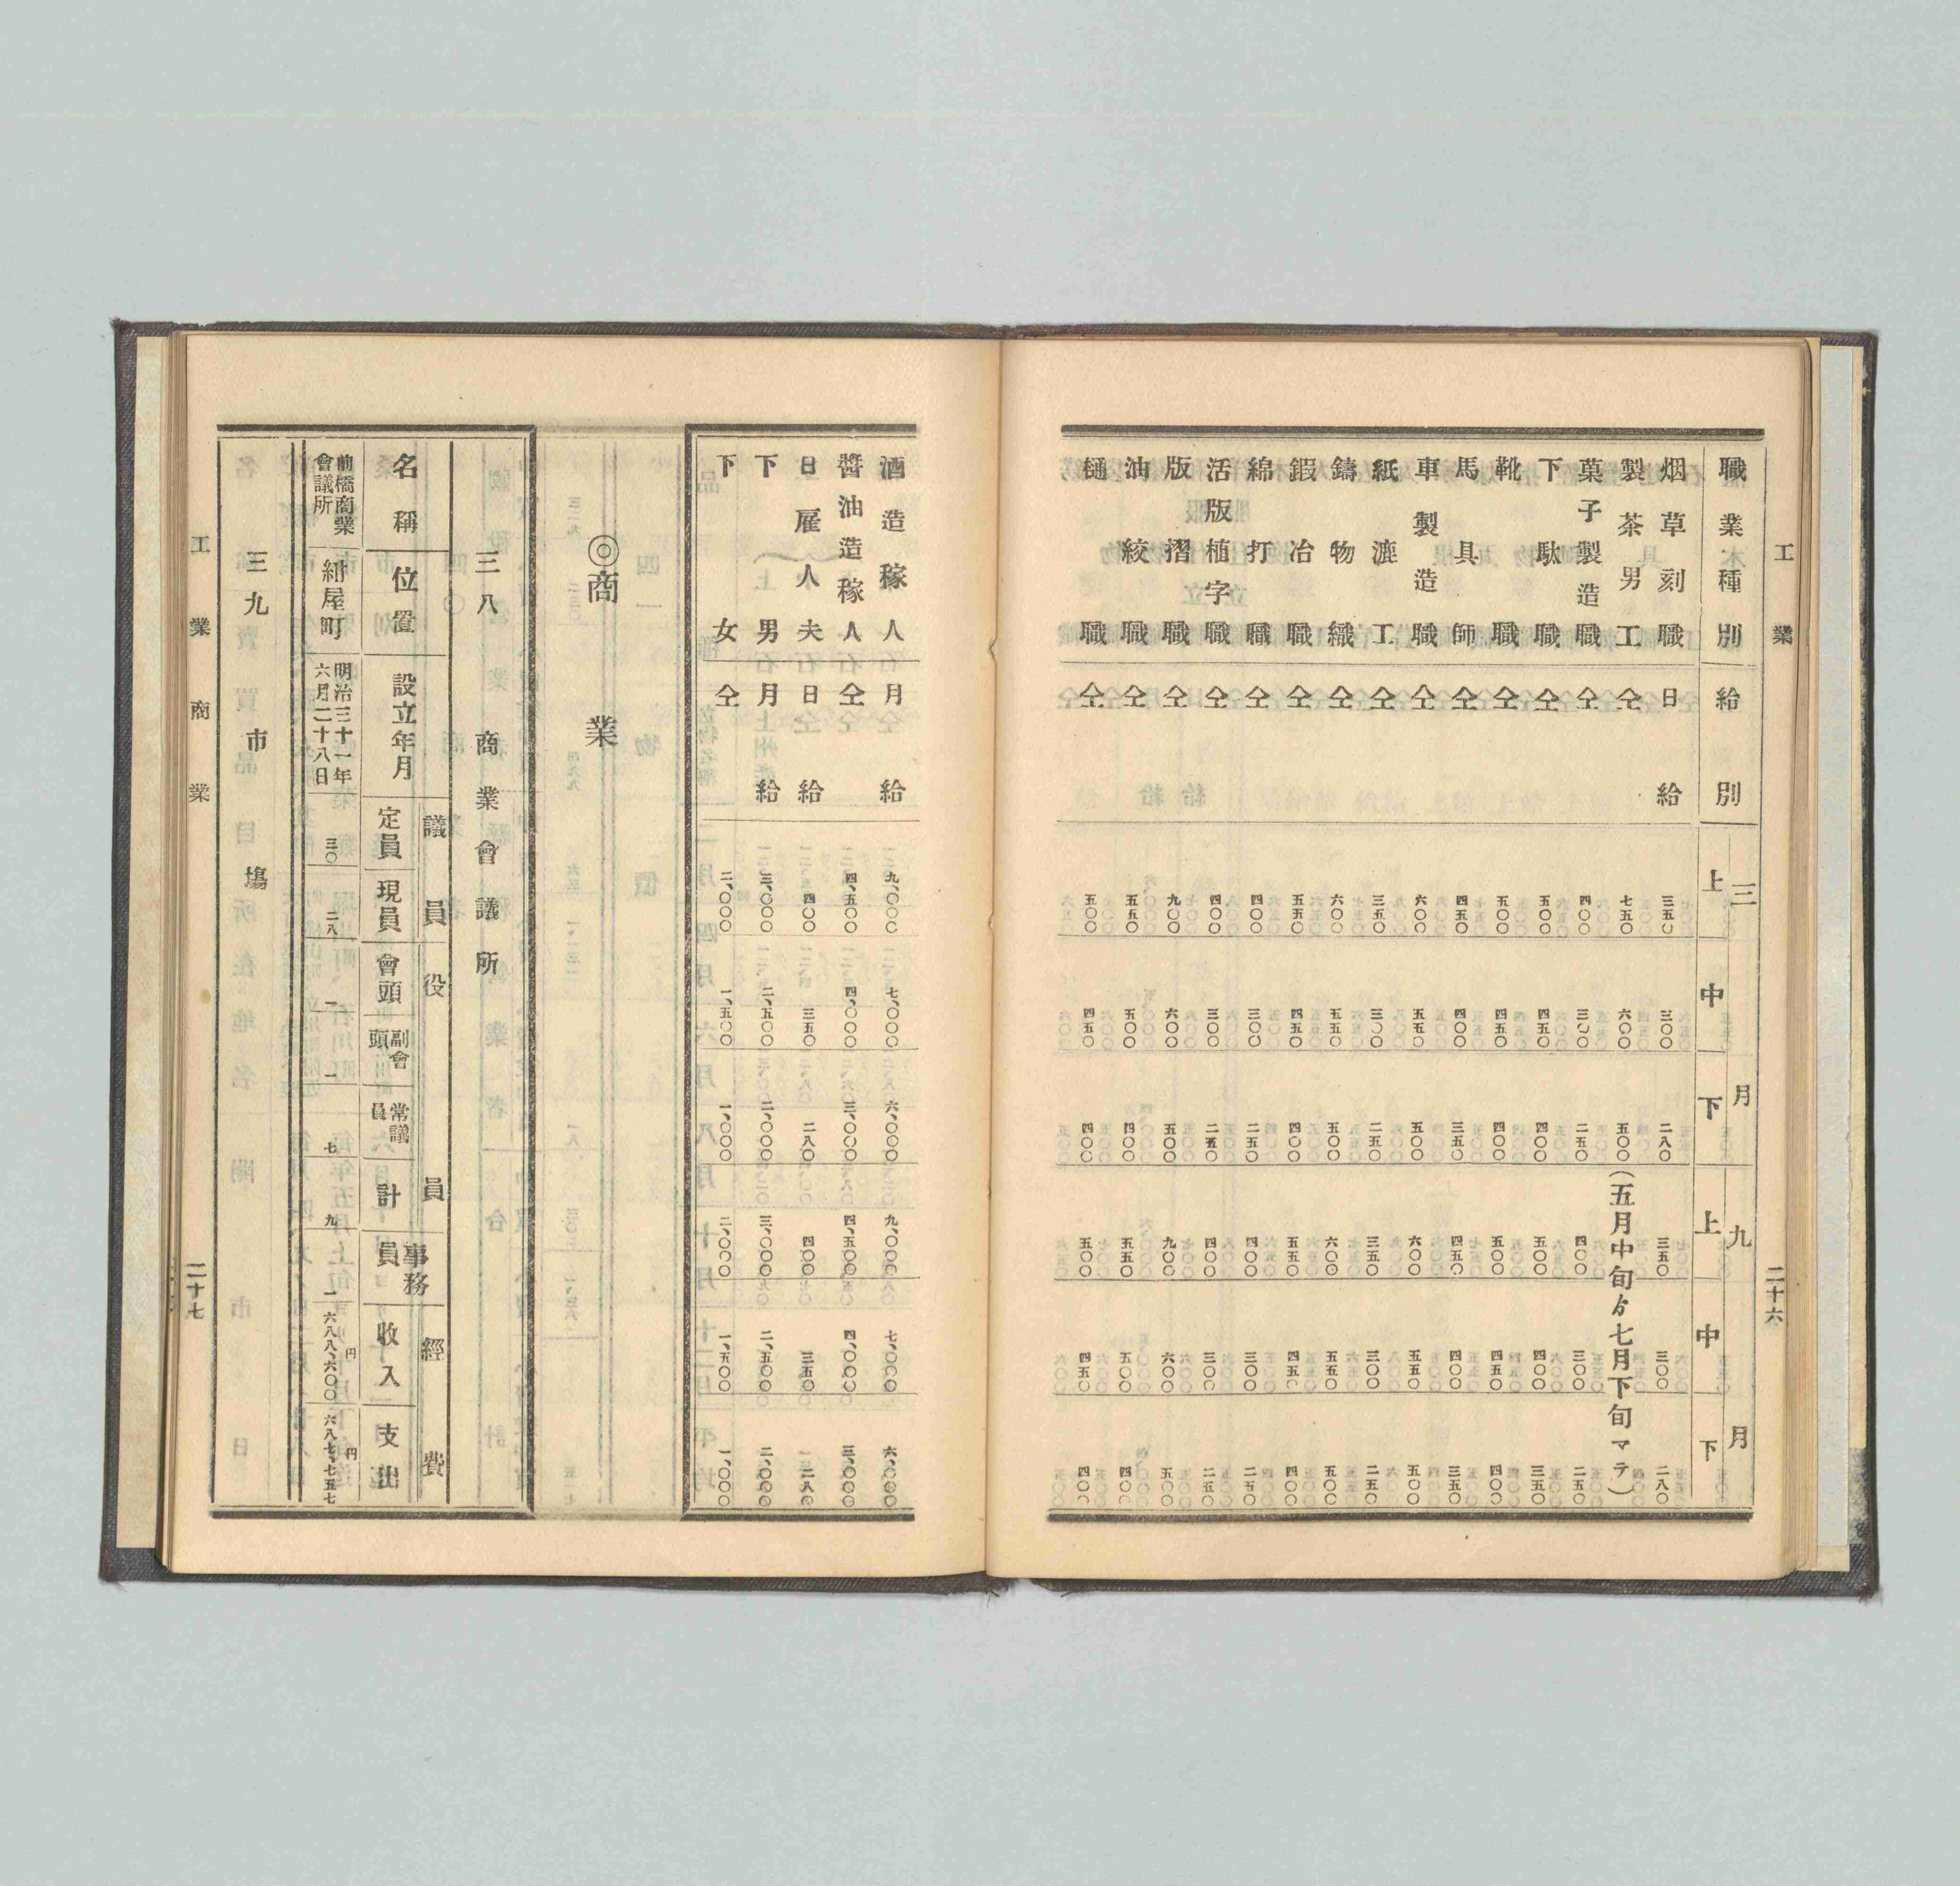 工業
二十六
職業種別 給別 三月 上 中 下 九月 上 中 下
烟草刻職 日給 三五〇 三〇〇 二八〇 三五〇 三〇〇 二八〇
製茶男工 仝 七五〇 六〇〇 五〇〇 (五月中旬ゟ七月下旬マテ)
菓子製造職 仝 四〇〇 三〇〇 二五〇 四〇〇 三〇〇 二五〇
下駄職 仝 五〇〇 四五〇 四〇〇 五〇〇 四〇〇 三五〇
靴職 仝 五〇〇 四五〇 四〇〇 五〇〇 四五〇 四〇〇
馬具師 仝 四五〇 四〇〇 三五〇 四五〇 四〇〇 三五〇
車製造職 仝 六〇〇 五五〇 五〇〇 六〇〇 五五〇 五〇〇
紙漉工 仝 三五〇 三〇〇 二五〇 三五〇 三〇〇 二五〇
鑄物織 仝 六〇〇 五五〇 五〇〇 六〇〇 五五〇 五〇〇
鍜冶職 仝 五五〇 四五〇 四〇〇 五五〇 四五〇 四〇〇
綿打職 仝 四〇〇 三〇〇 二五〇 四〇〇 三〇〇 二五〇
活版植字職 仝 四〇〇 三〇〇 二五〇 四〇〇 三〇〇 二五〇
版摺職 仝 九〇〇 六〇〇 五〇〇 九〇〇 六〇〇 五〇〇
油絞職 仝 五五〇 五〇〇 四〇〇 五五〇 五〇〇 四〇〇
樋職 仝 五〇〇 四五〇 四〇〇 五〇〇 四五〇 四〇〇
酒造稼人 月給 九、〇〇〇 七、〇〇〇 六、〇〇〇 九、〇〇〇 七、〇〇〇 六、〇〇〇
醬油造稼人 仝 四、五〇〇 四、〇〇〇 三、〇〇〇 四、五〇〇 四、〇〇〇 三、〇〇〇
日雇人夫 日給 四〇〇 三五〇 二八〇 四〇〇 三五〇 二八〇
下男 月給 三、〇〇〇 二、五〇〇 二、〇〇〇 三、〇〇〇 二、五〇〇 二、〇〇〇
下女 仝 二、〇〇〇 一、五〇〇 一、〇〇〇 二、〇〇〇 一、五〇〇 一、〇〇〇
◎商業
三八 商業會議所
議員 役員 經費
名稱 位置 設立年月 定員 現員 會頭 副會頭 常議員 計 事務員 收入 支出
前橋商業會議所 紺屋町 明治三十一年六月二十八日 三〇 二八 一 一 七 九 一 六八八、六〇〇円 六八七、七五七円
三九 市場
工業 商業
二十七